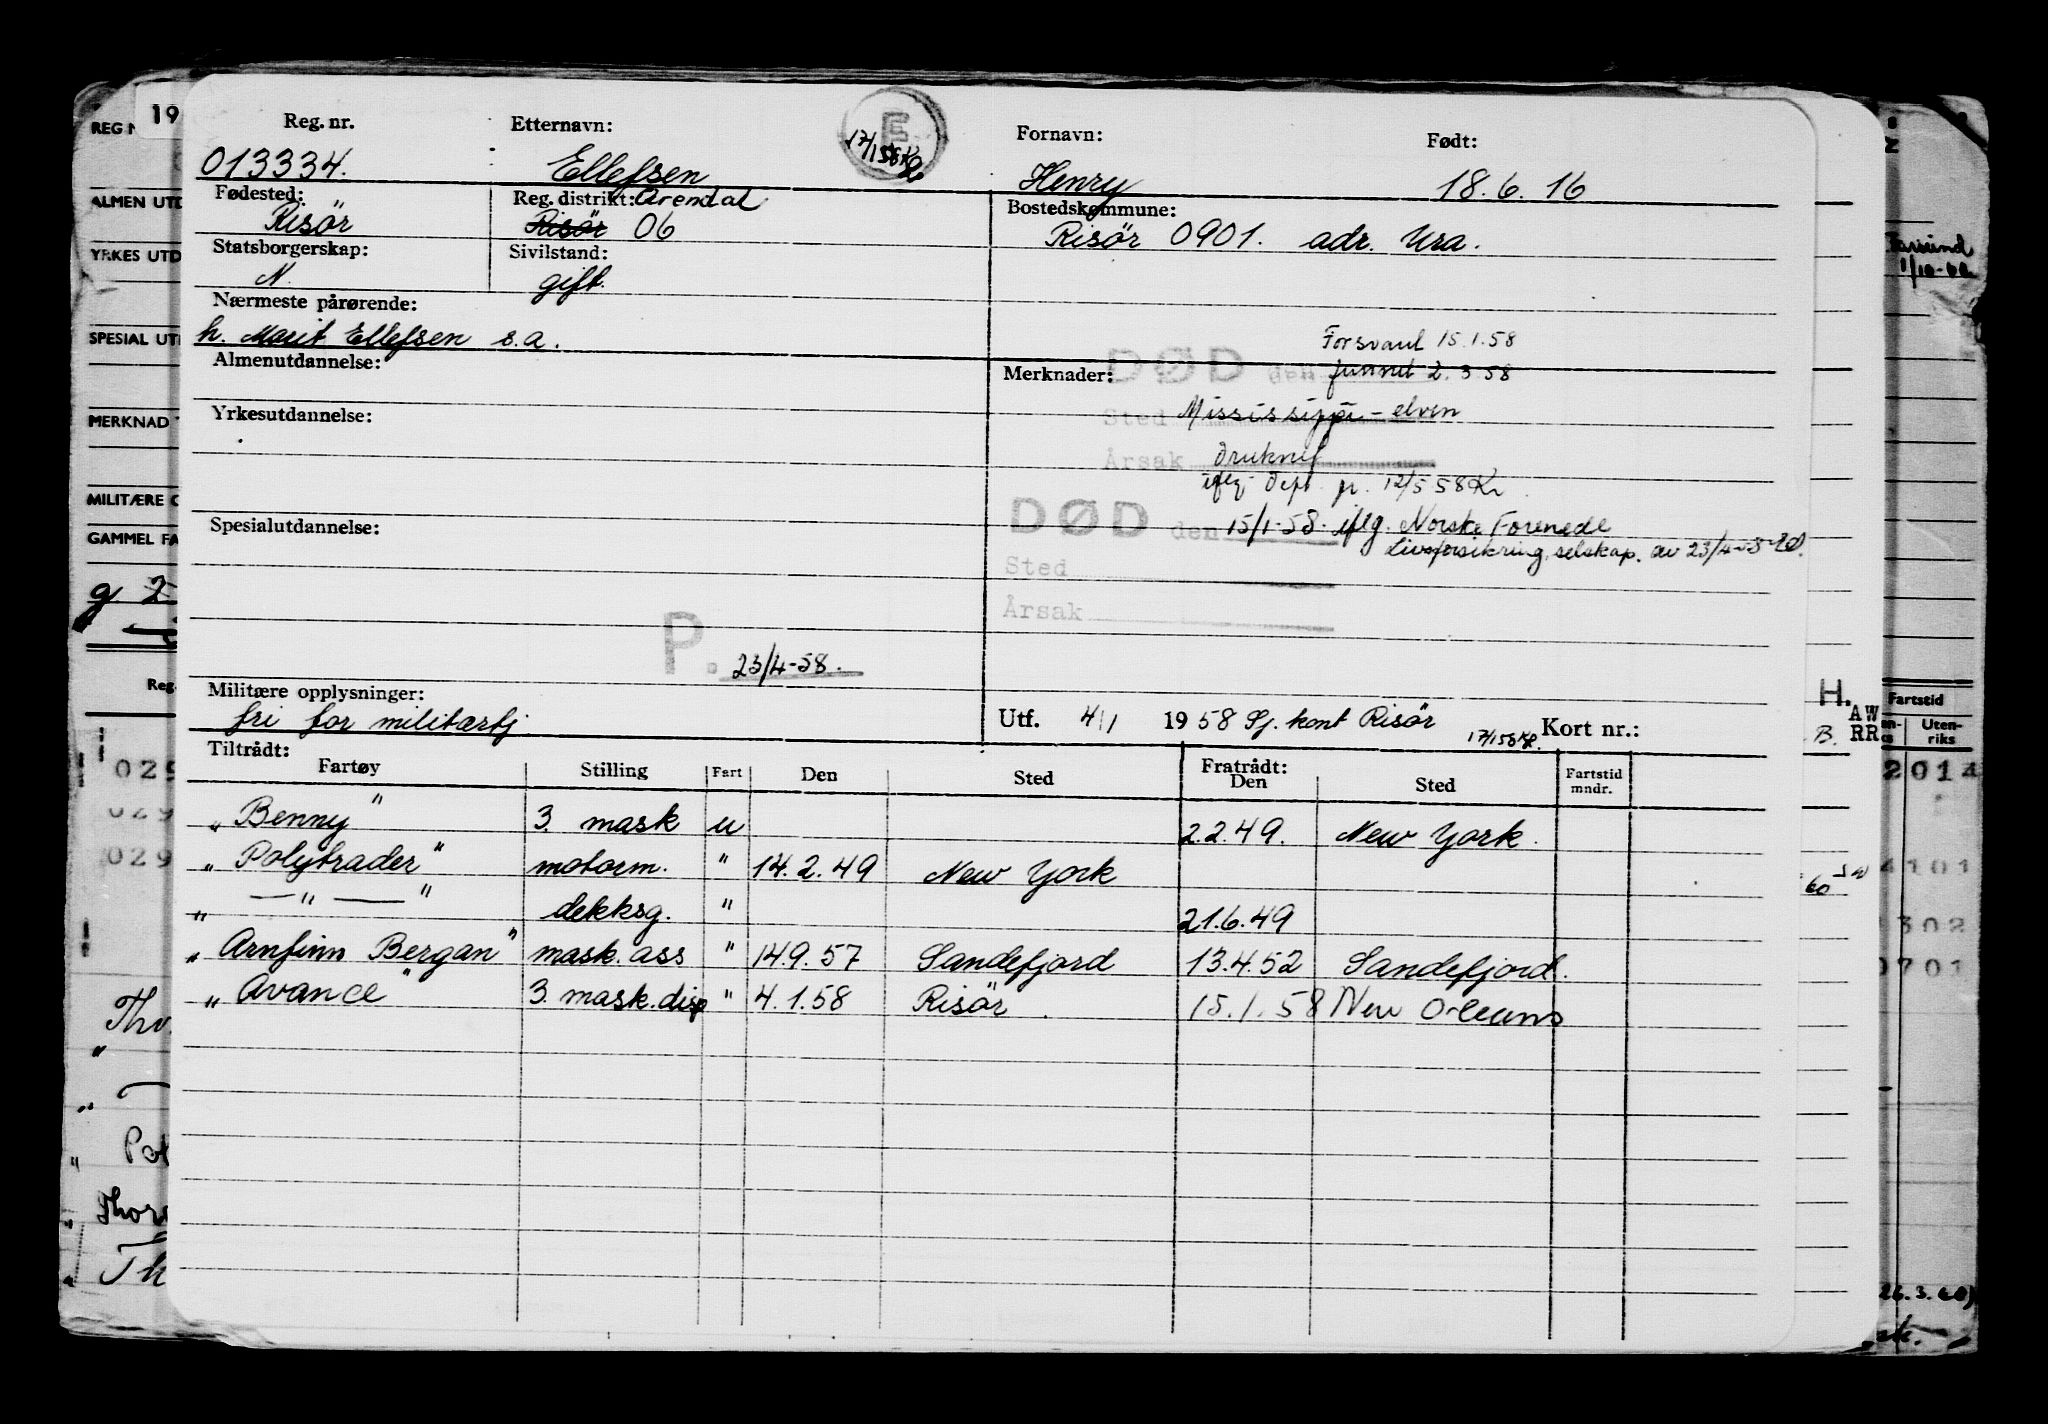 19
Reg. nr. Etternavn: E Fornavn: Født:
013334. Ellefsen 17/1 58 Henry 18.6.16
Fødested: Reg. distrikt: Arendal Bostedskommune:
Risör Risör 06 Risör 0901. adr. Ura.
Statsborgerskap: Sivilstand:
N. gift.
Nærmeste pårørende:
h. Marit Ellefsen s.a. Forsvant 15.1.58
Almenutdannelse: Merknader: DØD den funnet 2.3.58
Yrkesutdannelse: Sted Mississippi-elven
Årsak druknet
iflg. Dept. 12/5 58 Kr
Spesialutdannelse: DØD den 15/1-58. iflg. Norske Forenede
Livsforsikring. selskap. av 23/4-58
Sted
Årsak
P. 23/4-58.
Militære opplysninger:
fri for militærtj. Utf. 4/1 1958 Sj. kont Risör 17/1 58 Kort nr.:
Tiltrådt: Fratrådt:
Fartøy Stilling Fart Den Sted Den Sted Fartstid mndr.
" Benny " 3. mask u 2.2.49. New York.
" Polytrader " motorm. " 14.2.49 New York
" — " — " dekksg. " 21.6.49
" Arnfinn Bergan " mask. ass " 14.9.57 Sandefjord 13.4.52 Sandefjord.
" Avance " 3. mask. disp " 4.1.58 Risör. 15.1.58 New Orleans
REG N
ALMEN UTD
YRKES UTD
SPESIAL UT
MERKNAD
MILITÆRE
GAMMEL FA
g. 2
Reg.
029
029
029
Tho
Pol
Thor
Th
1/10-60
H.
B.
AW
RR
Fartstid
Uten-
riks
2014
60
4101
302
0701
26.3.60)